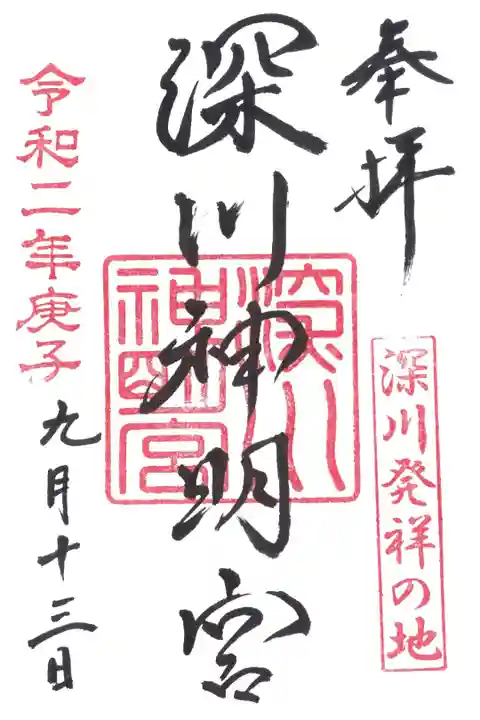 奉拝
深川発祥の地
深川神明宮
深川
神明宮
令和二年庚子
九月十三日